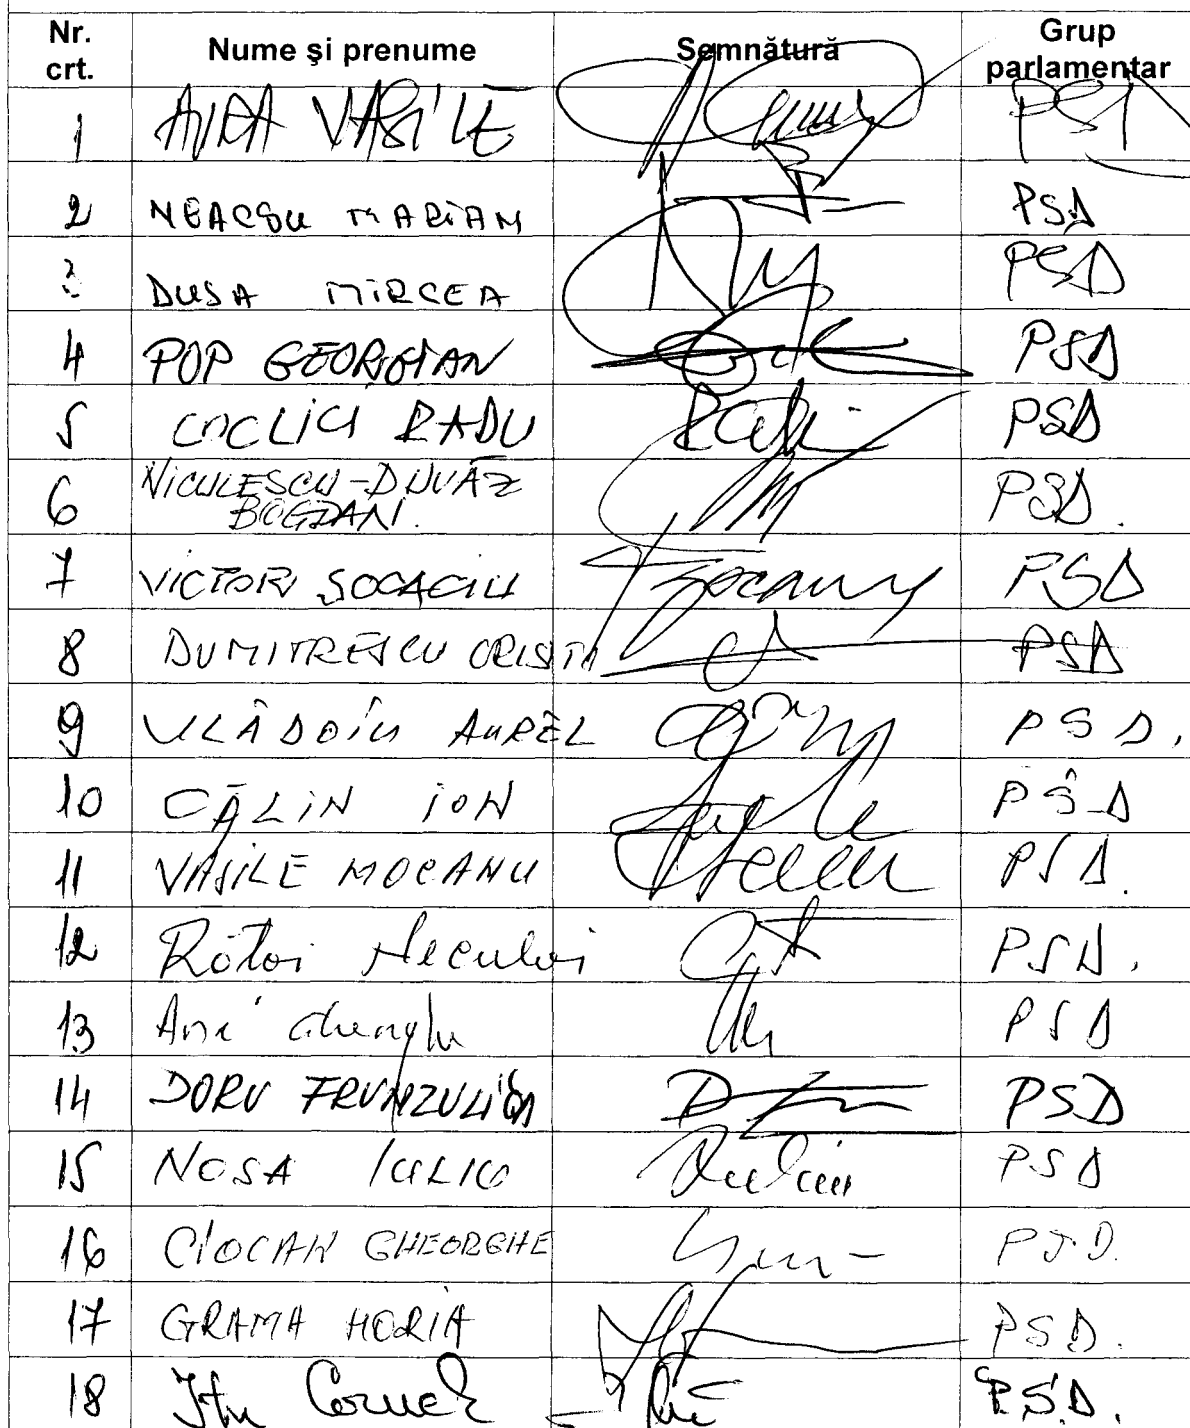 Nr. crt. Nume şi prenume Semnătură Grup parlamentar
1 AIRA VASILE PSD
2 NEACSU MARIAN PSD
3 DUSA MIRCEA PSD
4 POP GEORGIAN PSD
5 COCLICI RADU PSD
6 NICULESCU-DUVĂZ
BOGDAN. PSD.
7 VICTOR SOCACIU PSD
8 DUMITRESCU CRISTIAN PSD
9 VLĂDOIU AUREL PSD.
10 CĂLIN ION PSD
11 VASILE MOCANU PSD.
12 Rotoi Neculai PSD.
13 Ana Gheorghe PSD
14 DORU FRUNZULICĂ PSD
15 NOSA IULIU PSD
16 CIOCAN GHEORGHE PSD.
17 GRAMA HORIA PSD.
18 Cornel P.S.D.